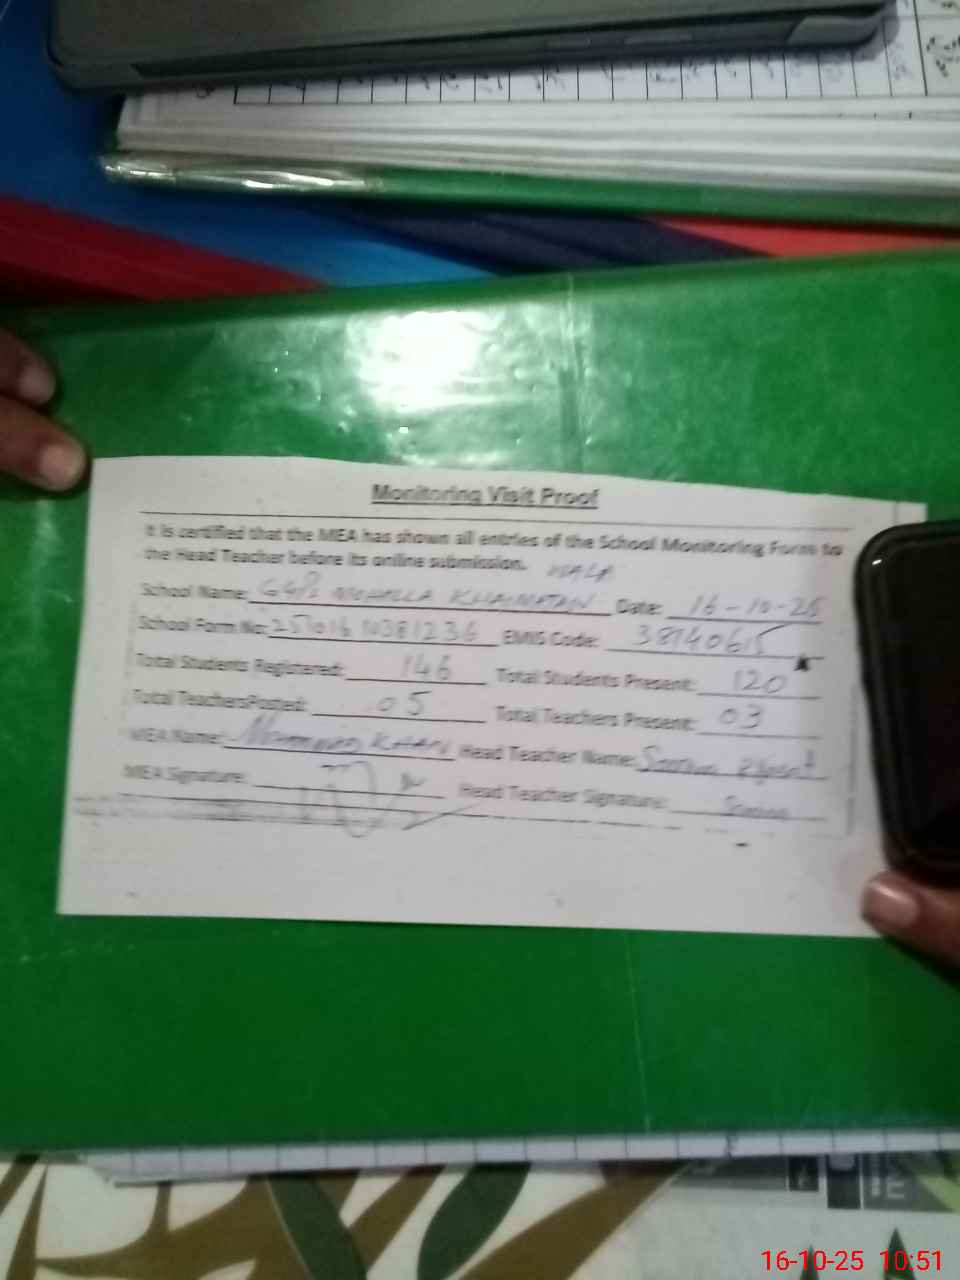 Monitoring Visit Proof
It is certified that the MEA has shown all entries of the School Monitoring Form to
the Head Teacher before its online submission. WALA
School Name: GGPS MOHALLA Date: 16-10-25
School Form No: 25101610381236 EMIS Code: 38140615
Total Students Registered: 146 Total Students Present: 120
Total TeachersPosted: 05 Total Teachers Present: 03
MEA Name: KHAN Head Teacher Name:
MEA Signature: Head Teacher Signature:
16-10-25 10:51